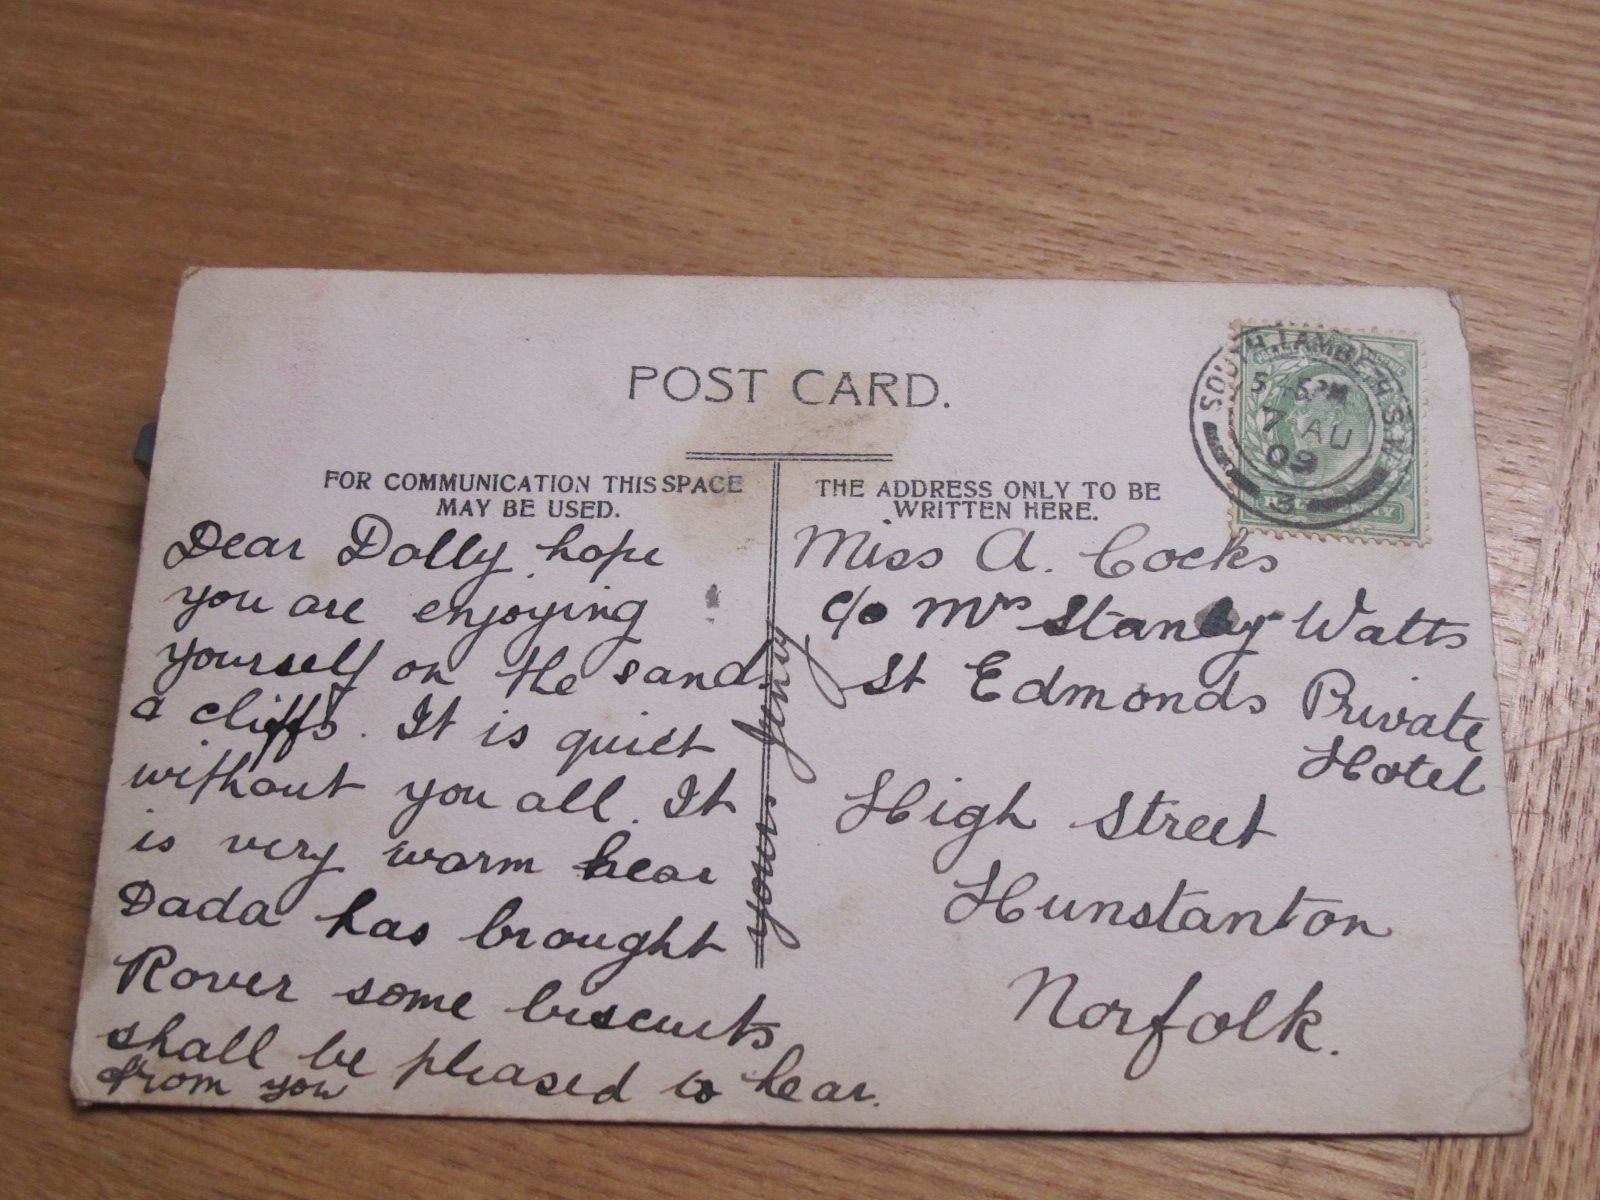 POST CARD.
FOR COMMUNICATION THIS SPACE
MAY BE USED.
Dear Dolly hope
you are enjoying
yourself on the sand
a cliffs. It is quiet
without you all. It
is very warm hear
Dada has brought
Rover some biscuits
shall be pleased to hear.
from you
yours Jenny
THE ADDRESS ONLY TO BE
WRITTEN HERE.
Miss A. Cocks
c/o Mrs Stanley Watts
St Edmonds Private
Hotel
High Street
Hunstanton
Norfolk.
SOUTH LAMBETH S.W.
5 PM
7 AU
09
3